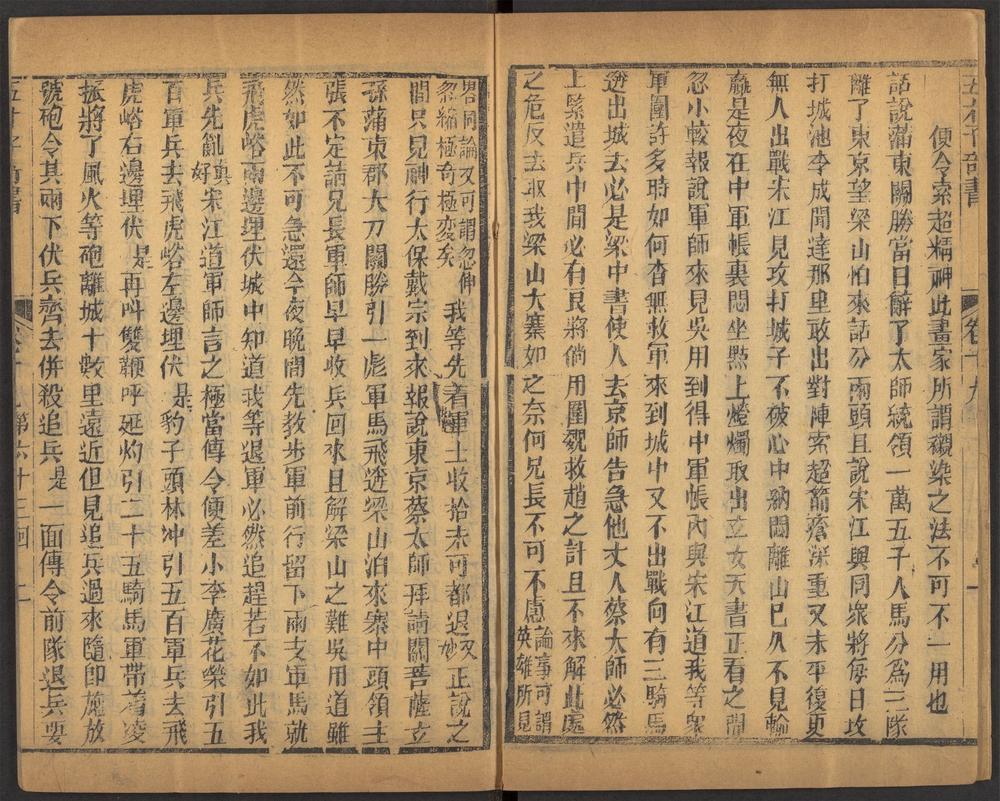 五才子奇書
卷十九
便令索超精神此畫家所謂襯染之法不可不一用也
話說蒲東關勝當日辭了太師統領一萬五千人馬分爲三隊
離了東京望梁山怕來話分兩頭且說宋江與同衆將每日攻
打城池李成聞達那里敢出對陣索超箭瘡深重又未平復更
無人出戰宋江見攻打城子不破心中納悶離山已久不見輸
贏是夜在中軍帳裏悶坐點上燈燭取出玄女天書正看之間
忽小校報說軍師來見吳用到得中軍帳內與宋江道我等衆
軍圍許多時如何杳無救軍來到城中又不出戰向有三騎馬
迯出城去必是梁中書使人去京師告急他丈人蔡太師必然
上緊遣兵中間必有良將倘用圍魏救趙之計且不來解此處
之危反去取我梁山大寨如之奈何兄長不可不慮論事可謂
英雄所見
畧同論又可謂忽伸
忽縮極奇極變矣我等先着軍士收拾未可都退又
妙正說之
間只見神行太保戴宗到來報說東京蔡太師拜請關菩薩玄
孫蒲東郡大刀關勝引一彪軍馬飛迯梁山泊來寨中頭領主
張不定請兄長軍師早早收兵回來且解梁山之難吳用道雖
然如此不可急還今夜晚間先教步軍前行留下兩支軍馬就
飛虎峪兩邊埋伏城中知道我等退軍必然追趕若不如此我
兵先亂真
好宋江道軍師言之極當傳令便差小李廣花榮引五
百軍兵去飛虎峪左邊埋伏是豹子頭林冲引五百軍兵去飛
虎峪右邊埋伏是再呌雙鞭呼延灼引二十五騎馬軍帶着凌
振將了風火等砲離城十數里遠近但見追兵過來隨卽施放
號砲令其兩下伏兵齊去併殺追兵是一面傳令前隊退兵要
五才子奇書
第六十三回
二